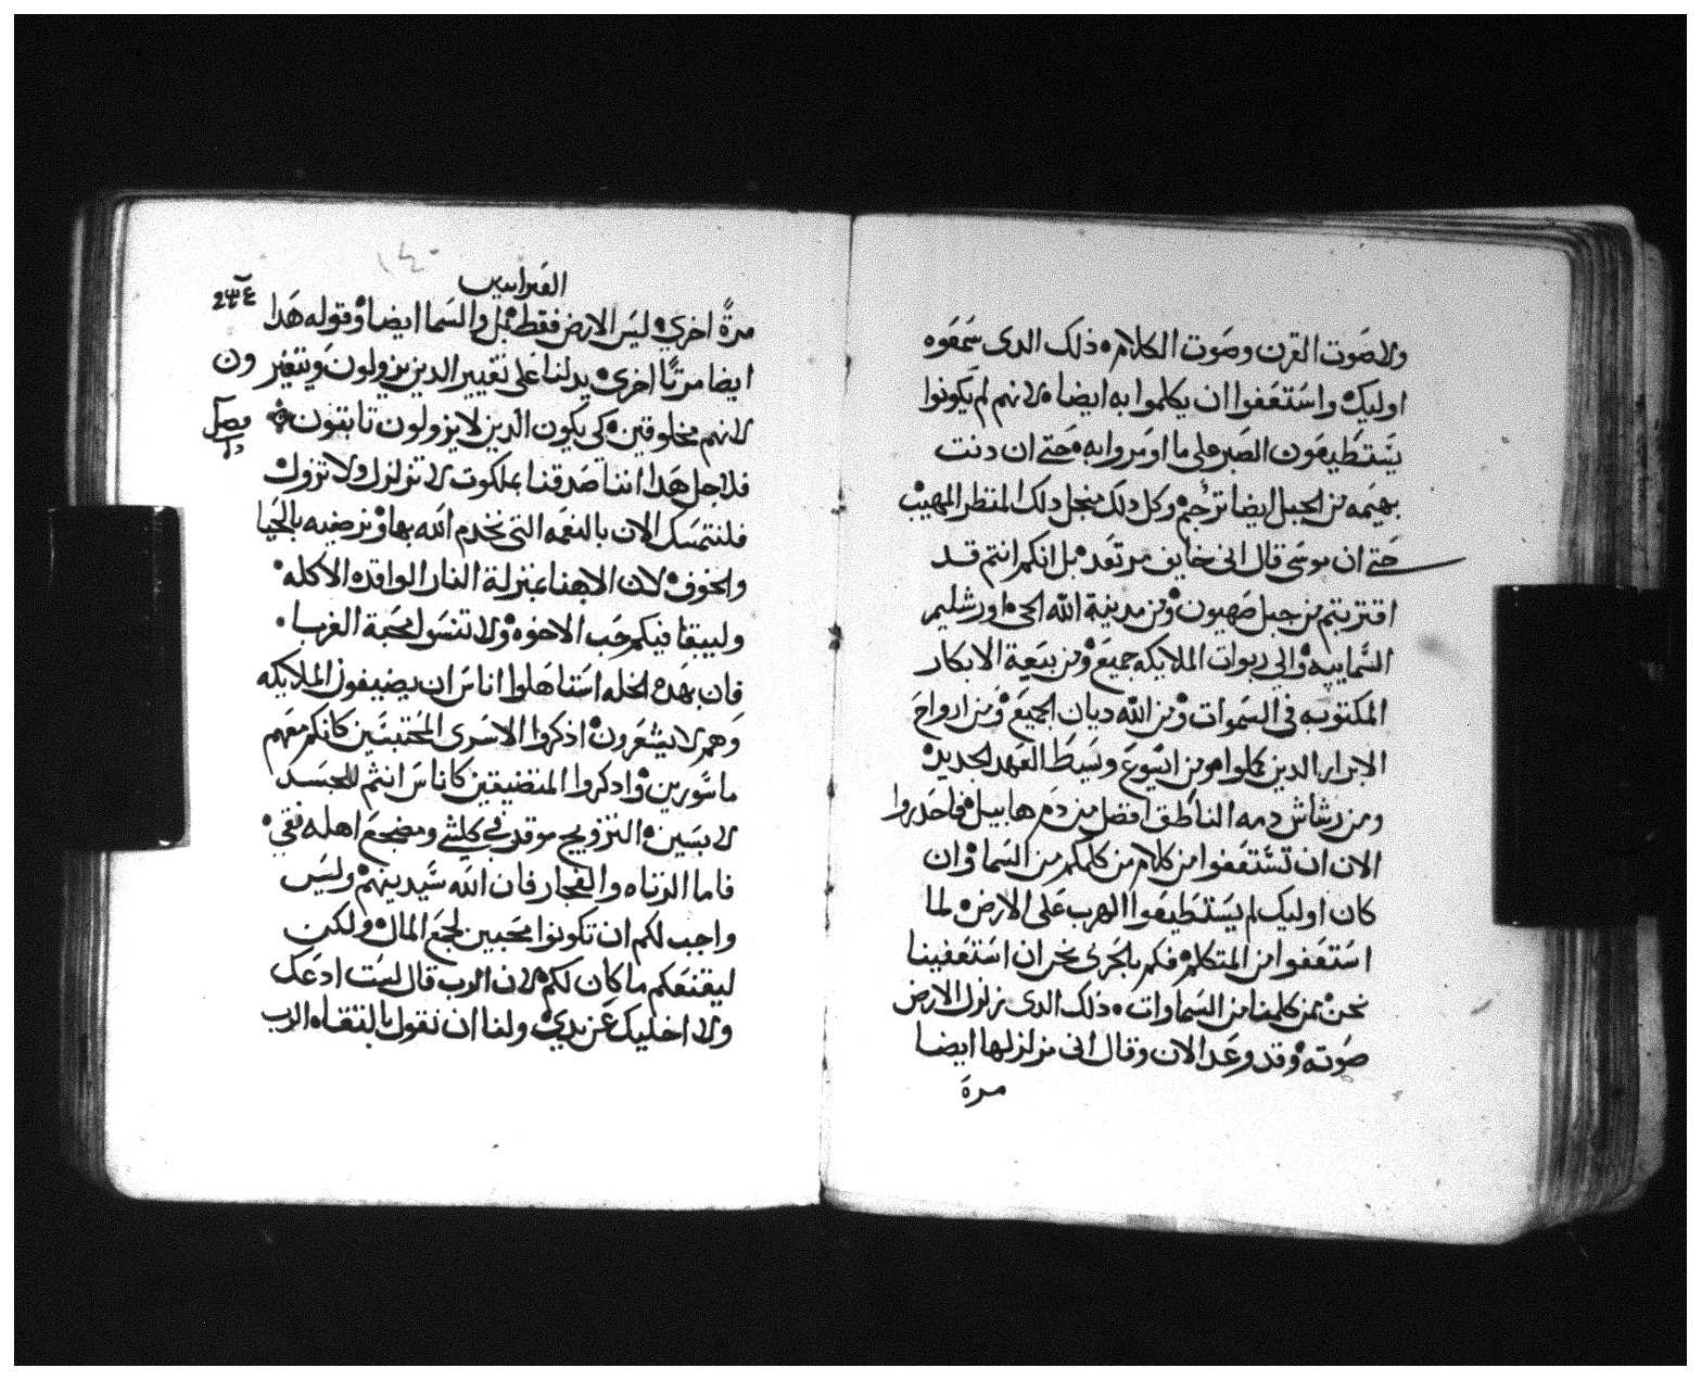 ولا صوت القرن وصوت الكلام ذلك الدى سمعوه
اوليك واستعفوا ان يكلموا به ايضا لانهم لم يكونوا
يستطيعون الصبر على ما اومروا به حتى ان دنت
بهيمه من الجبل ايضا ترجم وكل دلك منجل دلك المنظر المهيب
حتى ان موسى قال انى خايف مرتعد بل انكم انتم قد
اقتربتم من جبل صهيون ومن مدينة الله الحى اورشليم
السماييه والي ربوات الملايكه جميع ومن بيعة الابكار
المكتوبه في السموات ومن الله ديان الجميع ومن ارواح
الابرار الدين كملوا ومن ايسوع وسيط العهد الجديد
ومن رشاش دمه الناطق افضل من دم هابيل فاحدروا
الان ان تستعفوا من كلام من كلمكم من السما وان
كان اوليك لم يستطيعوا الهرب على الارض لما
استعفوا من المتكلم فكم بالحرى نحن ان استعفينا
نحن ممن كلمنا من السماوات ذلك الدى زلزل الارض
صوته وقد وعد الان وقال انى مزلزلها ايضا
مرة
١٤٠
العبرانيين
مرةً اخرى ليس الارض فقط بل والسما ايضا وقوله هدا
ايضا مرتًا اخرى يدلنا على تغيير الدين يزولون ويتغيرون
لانهم مخلوقين كي يكون الدين لا يزولون تابتون
فصل
فلاجل هدا اننا صدقنا بملكوت لا تزلزل ولا تزول
فلنتمسك الان بالنعمه التى نخدم الله بها ونرضيه بالحيا
والخوف لان الاهنا بمنزلة النار الواقده الاكله
وليبقا فيكم حب الاخوه ولا تنسوا محبة الغربا
فان بهده الخله استاهلوا اناس ان يضيفوا الملايكه
وهم لا يشعرون اذكروا الاسرى المحتبسين كانكم معهم
ماسورين وادكروا المتضيقين كاناس انتم للجسد
لابسين التزويج موقر في كلشي ومضجع اهله نقي
فاما الزناه والفجار فان الله سيدينهم وليس
واجب لكم ان تكونوا محبين لجمع المال ولكن
ليقنعكم ما كان لكم لان الرب قال لست ادعك
ولا اخليك عن يدي ولنا ان نقول بالتقاه الرب